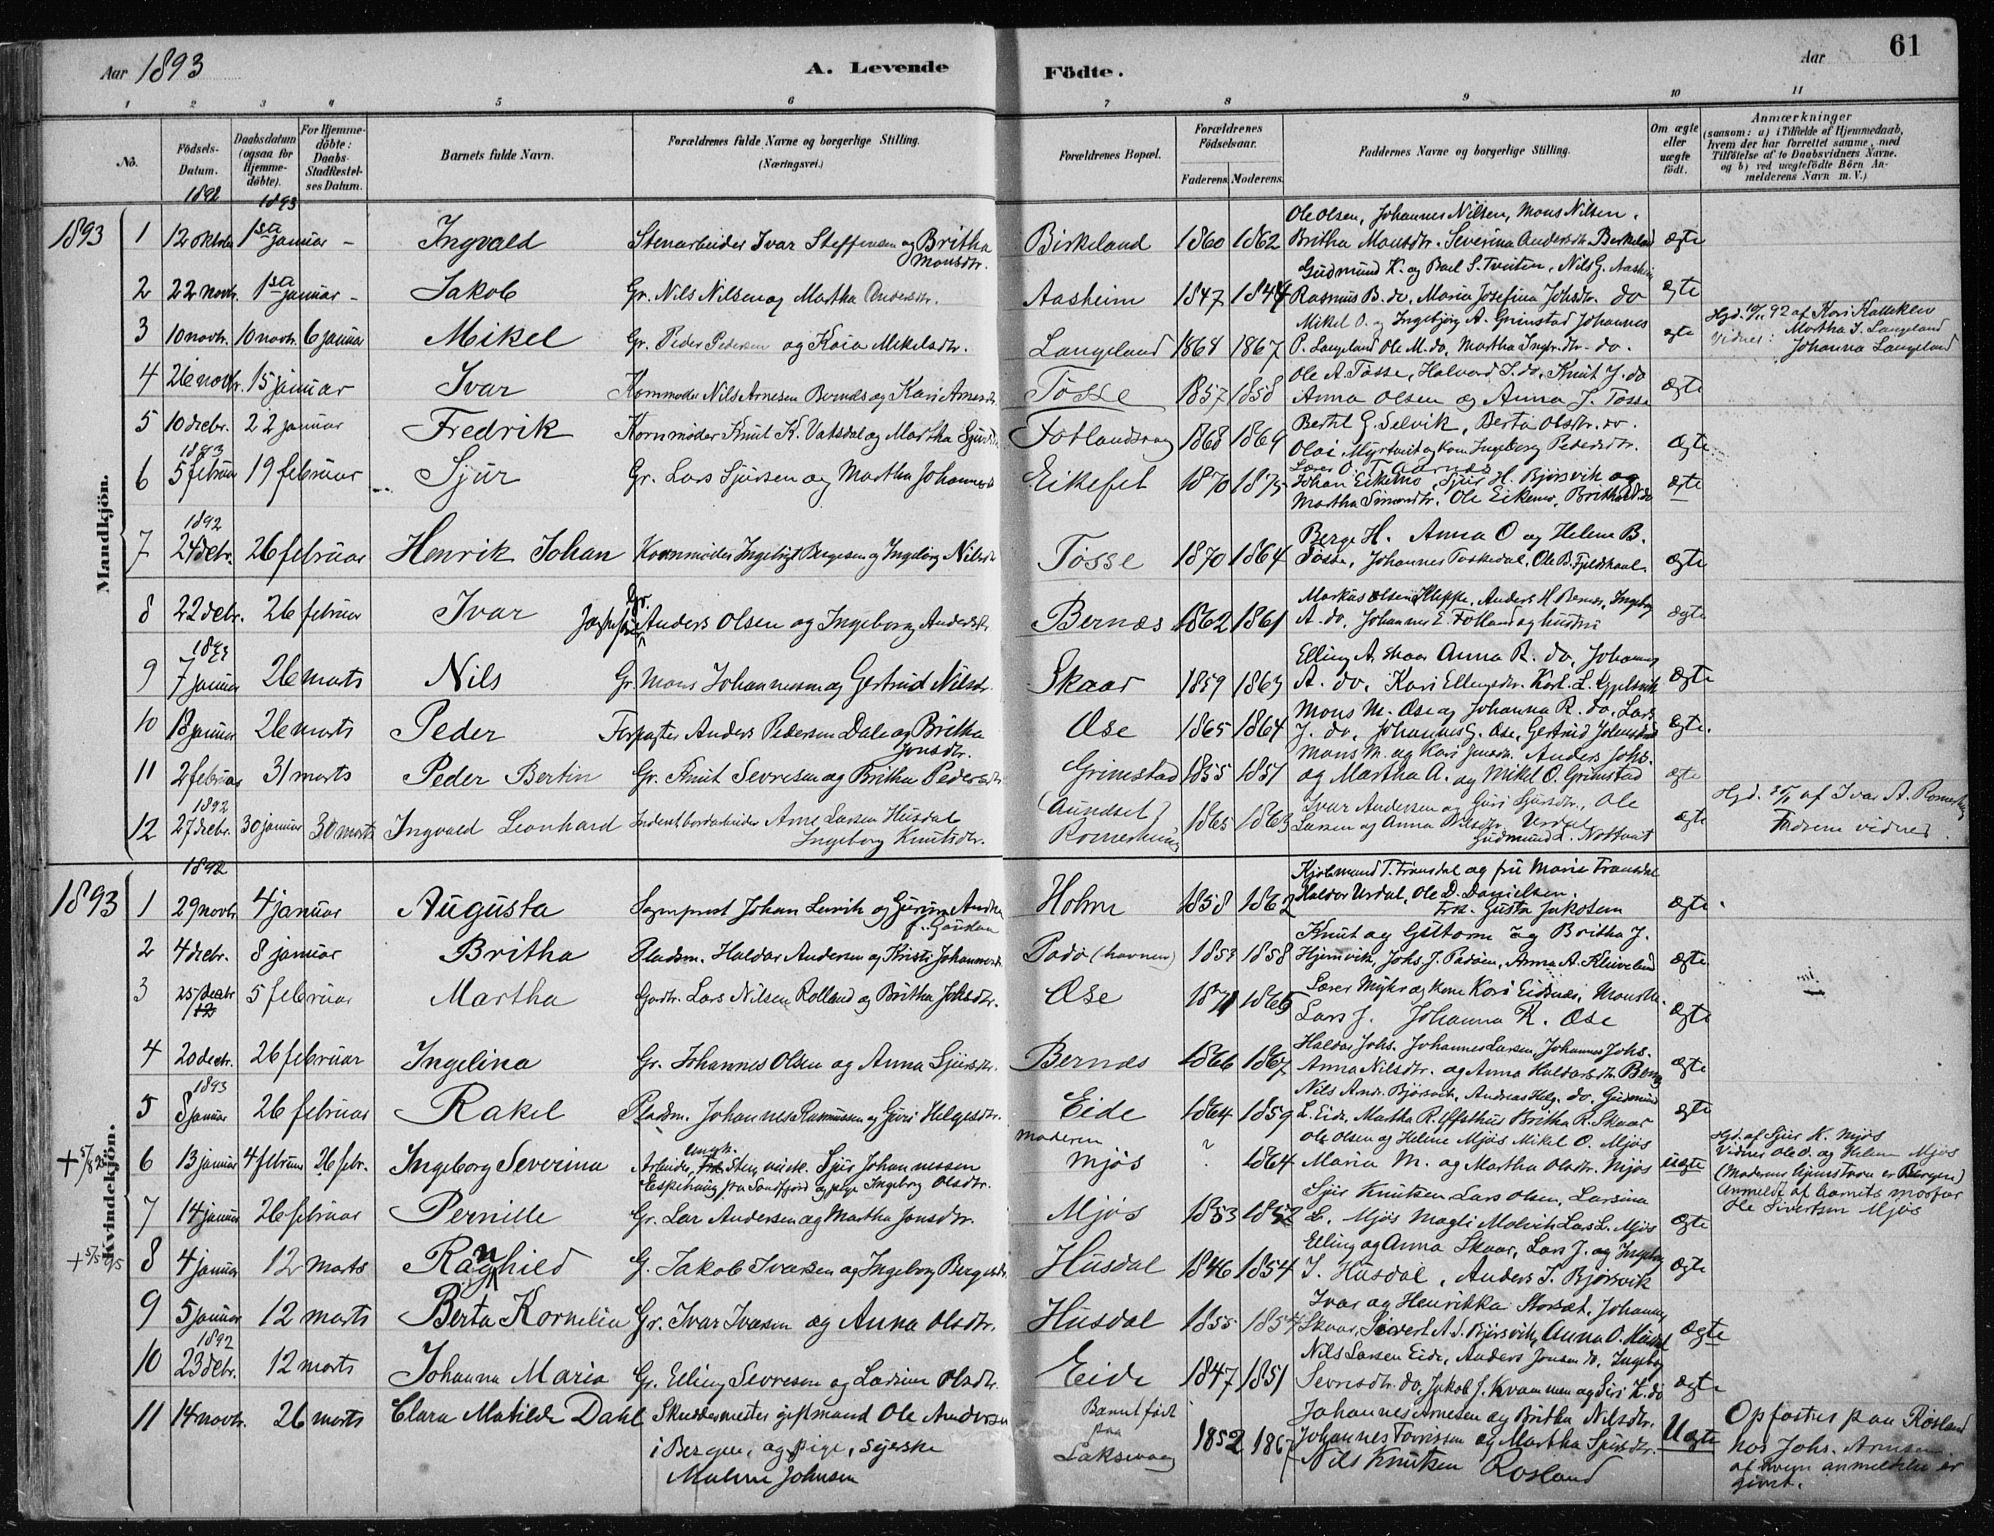 Aar 1893
A. Levende Födte.
Aar
61
1 2 3 4 5 6 7 8 9 10 11
No.
Födsels-Datum.
Daabsdatum (ogsaa for Hjemme-döbte).
For Hjemme-döbte: Daabs-Stadfæstelses Datum.
Barnets fulde Navn.
Forældrenes fulde Navne og borgerlige Stilling. (Næringsvei.)
Forældrenes Bopæl.
Forældrenes Födselsaar.
Faderens. Moderens.
Faddernes Navne og borgerlige Stilling.
Om ægte eller uægte födt.
Anmærkninger
(saasom: a) i Tilfælde af Hjemmedaab, hvem der har forrettet samme, med Tilföielse af to Daabsvidners Navne. og b) ved uægtefödte Börn Anmelderens Navn m. V.)
Mandkjön.
1892 1893
1893 1 12 oktober 1ste januar - Ingvald Stenarbeider Ivar Steffensen og Britha Monsdtr. Birkeland 1860 1862 Ole Olsen, Johannes Nilsen, Mons Nilsen. Britha Monsdtr. Severina Andersdtr. Berkeland ægte
2 22 novbr. 1ste januar - Jakob Gr. Nils Nilsen og Martha Andersdtr. Aasheim 1847 1844 Gudmund K. og Boel S. Tveiten, Nils G. Aasheim Rasmus B. do. Maria Josefina Johsdtr. do ægte
3 10 novbr. 10 novbr. 6 januar Mikel Gr. Peder Pedersen og Kaia Mikelsdtr. Langeland 1868 1867 Mikel O. og Ingebjørg A. Grimstad Johannes P. Langeland Ole M. do, Martha Ingbr.dtr. do. ægte Hjd. 10/11 92 af Kari Kalleklev Vidner: Martha I. Langeland Johanna Langeland
4 26 novbr. 15 januar Ivar Kornmøder Nils Arnesen Bernes og Kari Arnesdtr. Tösse 1857 1858 Ole A. Tösse, Halvord I. do, Knut J. do Anna Olsen og Anna J. Tösse ægte
5 10 decbr. 22 januar Fredrik Kornmøder Knut K. Vatsdal og Martha Sjursdtr. Fotlandsvaag 1868 1869 Bertel G. Selvik, Berta Olsdtr. do. Olai Myrtveit og kone Ingeborg Pedersdtr. ægte
1893
6 5 februar 19 februar Sjur Gr. Lars Sjursen og Martha Johannesdtr. Eikefet 1870 1875 Lærer O. T. Johan Eikemo, Sjur H. Bjørsvik og Martha Simonsdtr. Ole Eikemo, Britha ægte
1892
7 24 decbr. 26 februar Henrik Johan Kornmøder Ingebrigt Bergesen og Ingeborg Nilsdtr. Tösse 1870 1864 Berge H. Anna O og Helene B. Tösse, Johannes Toskedal, Ole B. Fjeldskaal. ægte
8 22 decbr. 26 februar Ivar Gr. Anders Olsen og Ingeborg Andersdtr. Bernæs 1862 1861 Markus Olsen Kleppe, Anders H. Bernes, Ingeborg A. do, Johannes E. Fotland og hustru ægte
1893
9 7 januar 26 marts Nils Gr. Mons Johannesen og Gertrud Nilsdtr. Skaar 1859 1863 Elling A. Skaar Anna R. do, Johannes A. do, Kari Ellingsdtr. Karl L. ægte
10 18 januar 26 marts Peder Forpagter Anders Pedersen Dale og Britha Jonsdtr. Øse 1865 1864 Mons M. Øse og Johanna R. do, Lars J. do, Johannes G. Øse, Gertrud ægte.
11 2 februar 31 marts Peder Bertin Gr. Knut Sevresen og Britha Pedersdtr. Grimstad 1855 1851 Mons M. og Kari Jensdtr. Anders Johs. og Martha A. og Mikel O. Grimstad ægte
1892
12 27 decbr. 30 januar 30 marts Ingvald Leonhard Indentbordarbeider Arne Larsen Husdal Ingeborg Knutsdtr. (Aundset) Romerheim 1865 1863 Ivar Andersen og Guri Sjursdtr., Ole Larsen og Anna Nilsdtr. Urdal Gudmund L. Nottveit ægte Hjd. af Ivar A. Romerheim Endsene vidner.
Kvindekjön.
1892
1893 1 29 novbr 4 januar Augusta Sogneprest Johan Lunde og Gurine Andrea f. Holme 1858 1862 Kjølemund T. Frøisdal og fru Maria Haldor Urdal, Ole D. Danielsen. Frk. Gusta Jakobsen ægte.
2 4 decbr. 8 januar Britha Pladsm. Haldor Andersen og Kristi Johannesdtr. Padø (havnen) 1853 1858 Knut og Guttorm og Britha J. Hjelmvik, Johs J. Padøen, Anna A. Kleiveland ægte
3 25/decbr 12 5 februar Martha Gardbr. Lars Nilsen Rolland og Britha Johsdtr. Øse 1871 1865 Lærer Myhr og kone Kari Eidsnæs, Mons M. Lars J. Johanna R. Øse ægte
4 20 decbr. 26 februar Ingelina Gr. Johannes Olsen og Anna Sjursdtr. Bernæs 1866 1867 Haldor Johs. Johannes Larsen, Johannes Johs. Anna Nilsdtr. og Anna Haldorsdtr. ægte
1893
5 8 januar 26 februar Rakel Pladsm. Johannes Rasmussen og Guri Helgesdtr. Eide 1864 1859 Nils Andr. Bjørsvik, Andreas Helg. do, Gudmund L. Eide, Martha R. Øfsthus Britha R. Skaar ægte
+ 5/8 95 6 13 januar 4 februar 26 febr. Ingeborg Severina Arbeider, Sjur Johannessen Espetvung fra Sandfjord og pige Ingeborg Olsdtr. moderen Mjøs ? 1864 Ole Olsen og Helene Mjøs Mikel O. Mjøs Maria M. og Martha Olsdtr. Mjøs uægte Hjd. af Sjur K. Mjøs Vidner Ole O. og Helene Mjøs (Moderens hjemstavn er Bergen) Anmeldt af barnets morfar Ole Sivertsen Mjøs
7 14 januar 26 februar Pernille Gr. Lars Andersen og Martha Jonsdtr. Mjøs 1853 1852 Sjur Knutsen Lars Olsen, Larsina L. Mjøs Magli Molvik Lars L. Mjøs ægte
+ 5/5 95 8 4 januar 12 marts Ragnhild G. Jakob Ivarsen og Ingeborg Bergesdtr. Husdal 1846 1854 Elling og Anna Skaar, Lars J. og Ingeborg I. Husdal, Anders I. Bjørsvik ægte
9 5 januar 12 marts Berta Kornelia Gr. Ivar Ivarsen og Anna Olsdtr. Husdal 1855 1854 Ivar og Henrikka Storset, Johannes Skaar, Sivert A. S. Bjørsvik, Anna O. Husdal ægte
1892
10 23 decbr. 12 marts Johanna Maria Gr. Elling Sevresen og Larsine Olsdtr. Eide 1847 1851 Nils Larsen Eide, Anders Jonsen do, Ingeborg Sevresdtr. do, Jakob J. Kvammen og Siri K. do ægte
11 14 novbr. 26 marts Clara Matilde Dahl Skreddermester giftmand Ole Andersen i Bergen, og pige, syerske Malene Johnsen Barnet født paa Laksevaag 1852 1867 Johannes Arnesen og Britha Nilsdtr. Johannes Tormssen og Martha Sjursdtr. Nils Knutsen Rosland Uægte Opfostres paa Rosland hos Johs. Arnesen af hvem anmeldelse er givet.